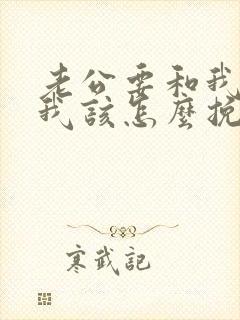 老公要和我
我该怎麼挽
寒武記